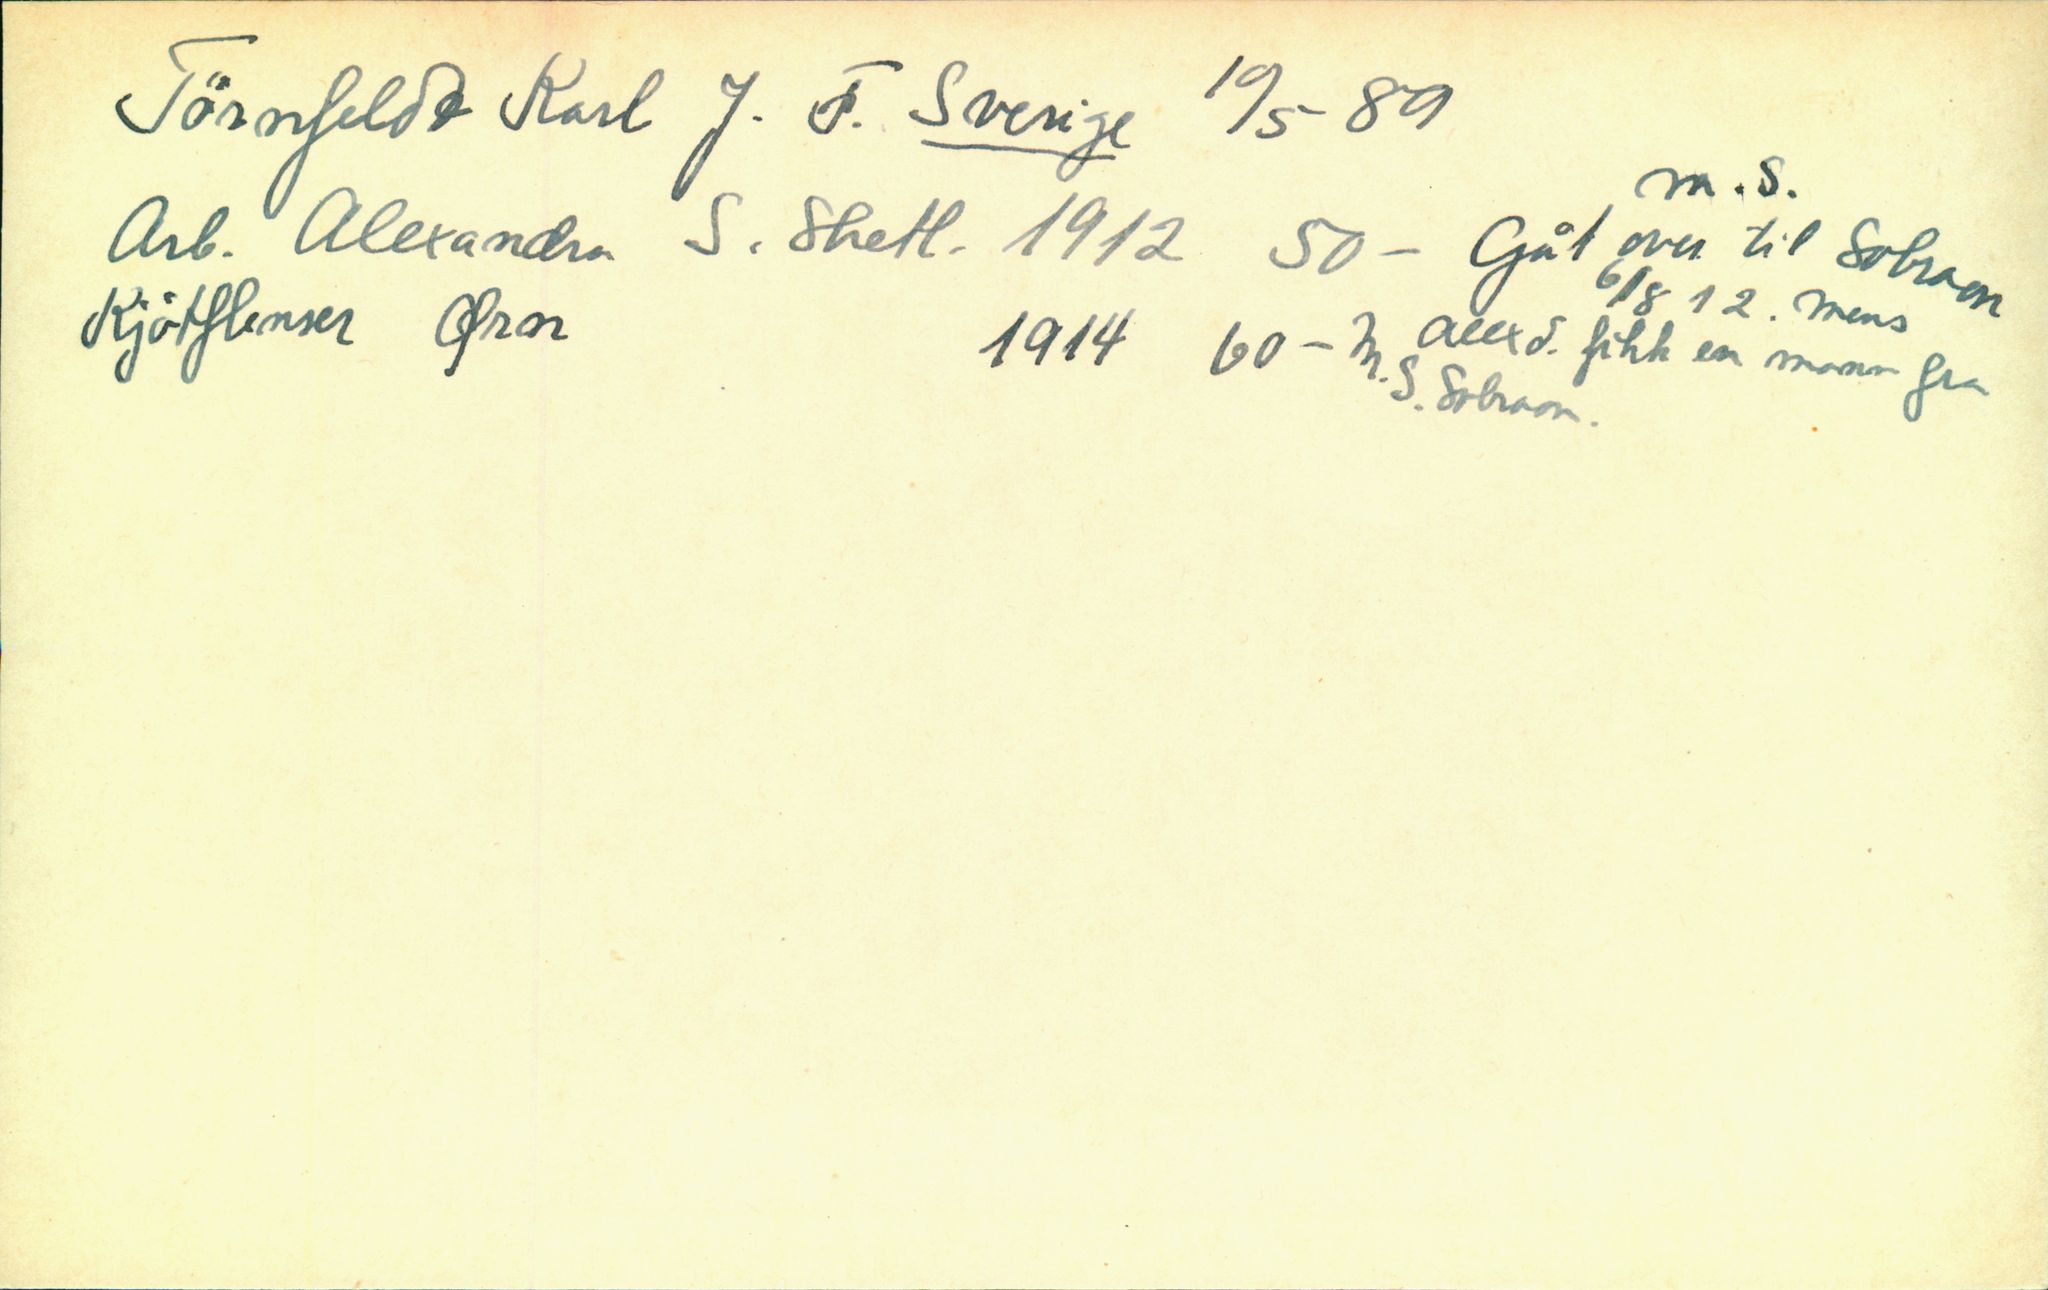 Törnfeldt Karl J. F. Sverige 19/5-89
m.S.
Arb. Alexandra S. Shetl. 1912 50- Gåt over til Sobraon
6/8 12. mens
Kjötflenser Ørn 1914 60- Alexd. fikk en mann fra
M.S. Sobraon.